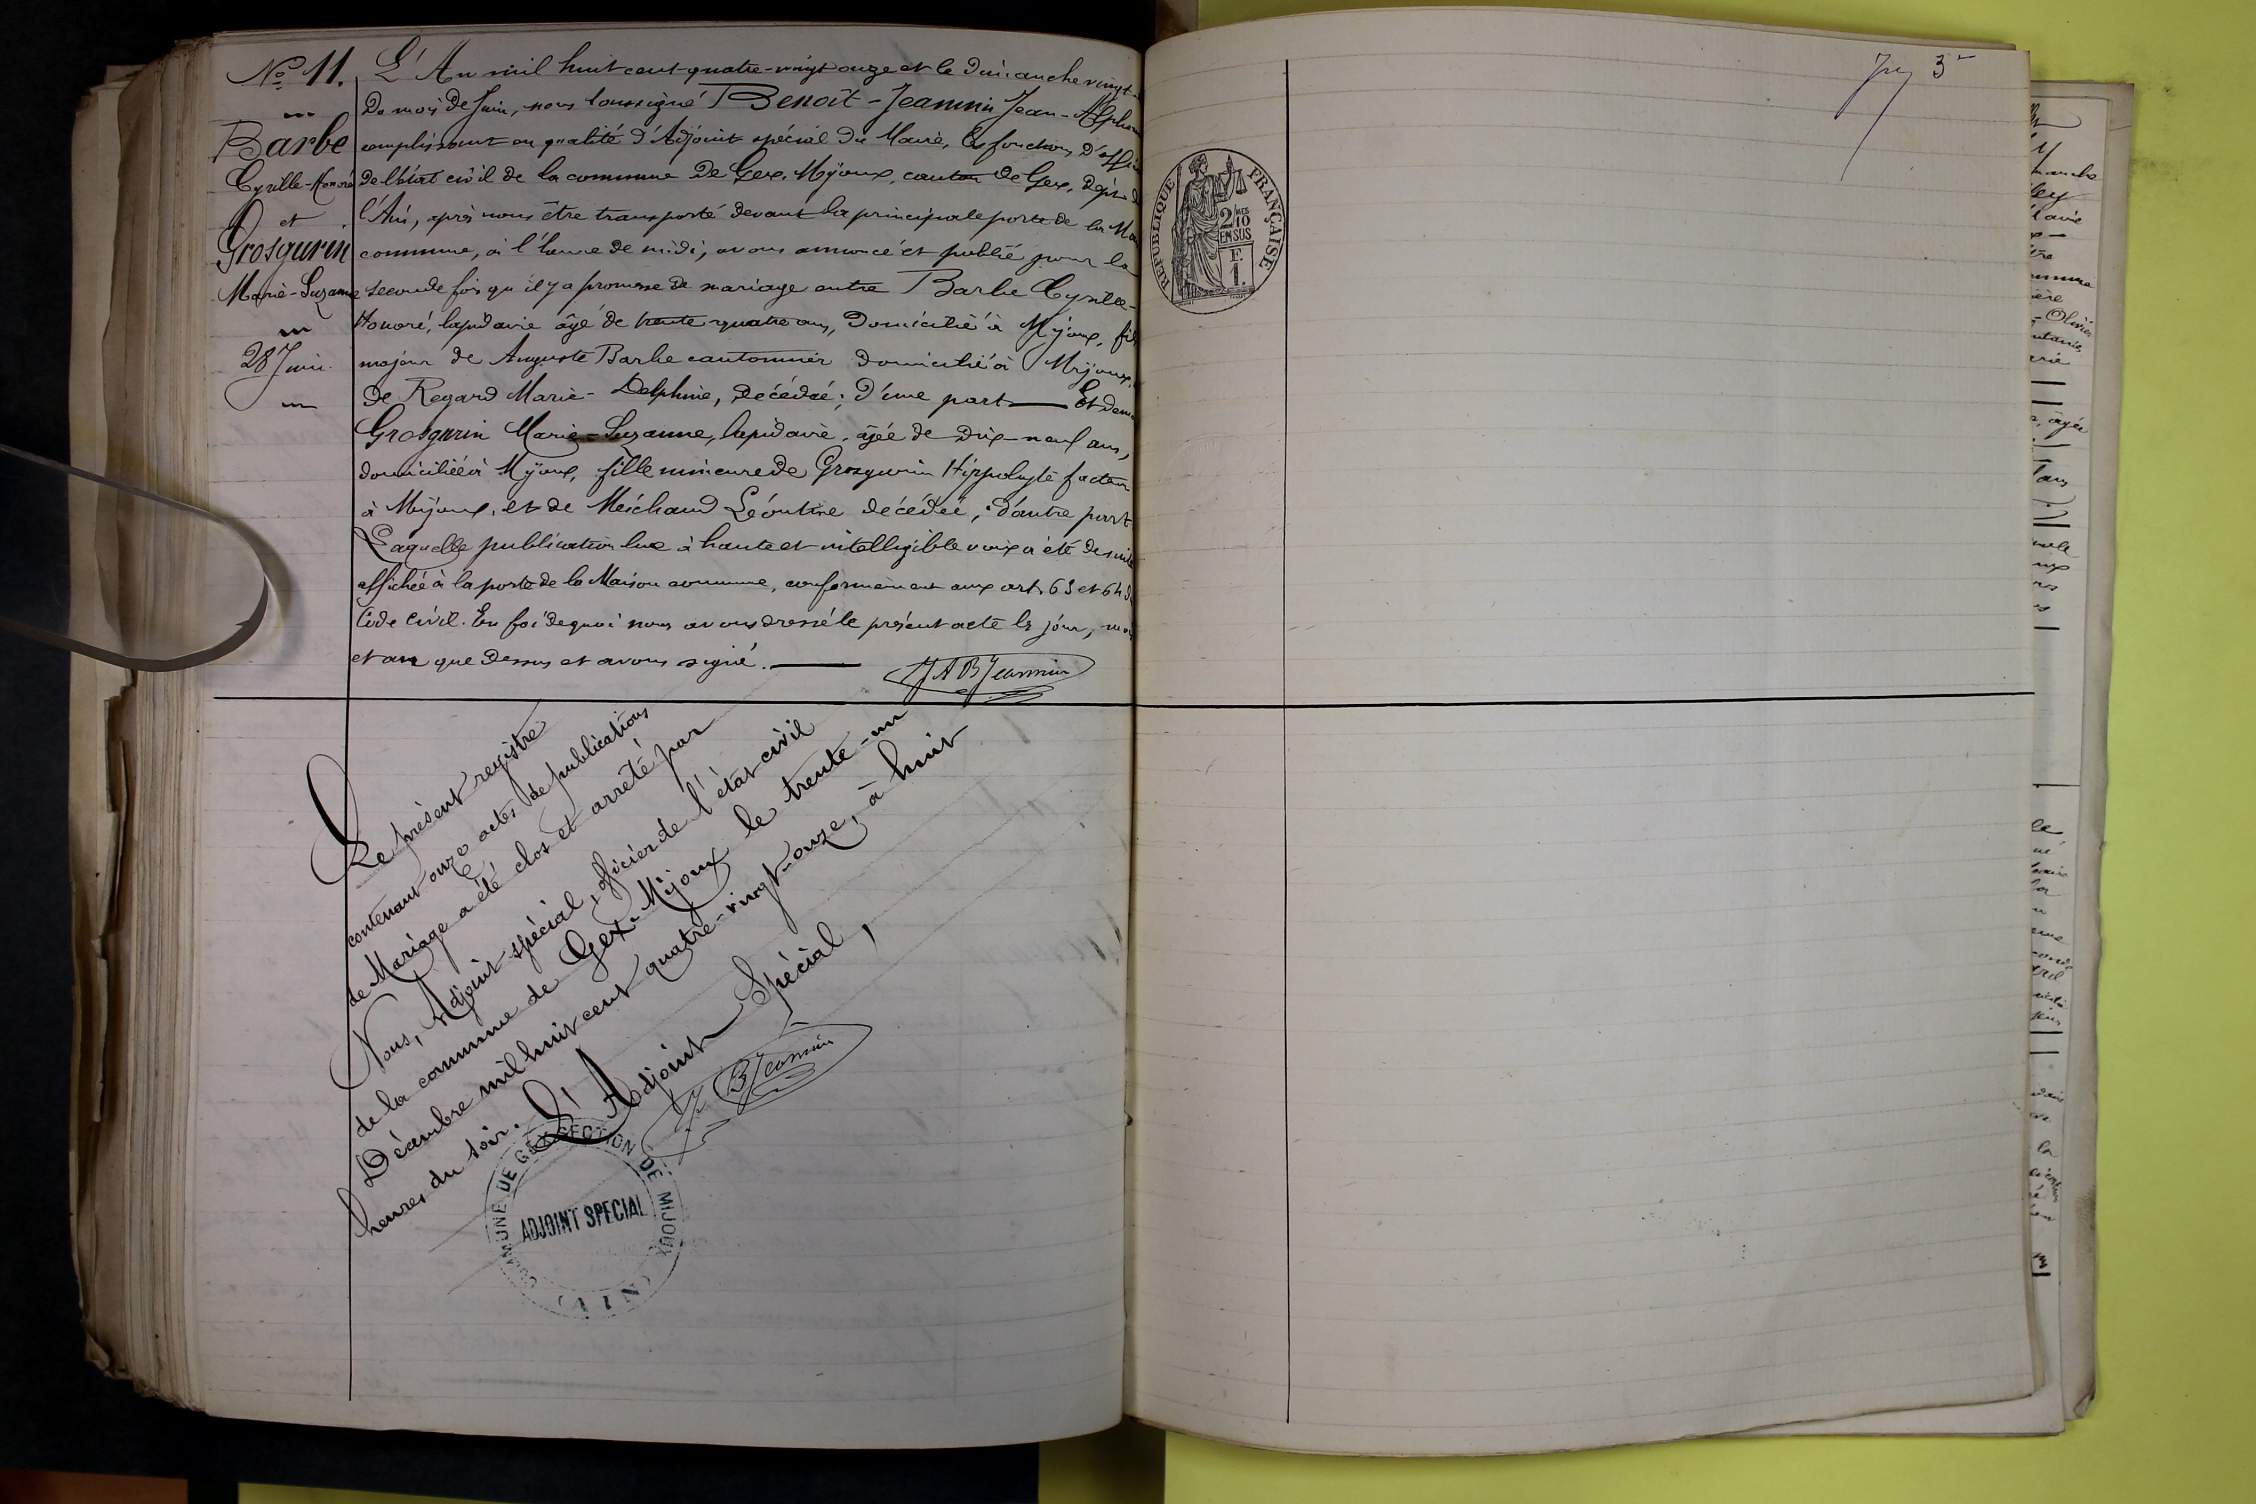 N° 11.
Barbe
Cyrille-Honoré
et
Grosgurin
Marie-Suzanne
28 Juin.
L'An mil huit cent quatre-vingt onze et le Dimanche vingt-
Du mois de Juin, nous soussigné Benoit-Jeannin Jean-Alphon
complissant en qualité d'Adjoint spécial du Maire, les fonctions d'offici
de l'état civil de la commune de Gex-Mijoux, canton de Gex, dépt d
l'Ain, après nous être transporté devant la principale porte de la Mai
commune, à l'heure de midi, avons annoncé et publié pour la
seconde fois qu'il y a promesse de mariage entre Barbe Cyrille-
Honoré, lapidaire âgé de trente quatre ans, domicilié à Mijoux, fils
majeur de Auguste Barbe cantonnier domicilié à Mijoux,
de Regard Marie-Delphine, décédée; d'une part — Et dem
Grosgurin Marie-Suzanne, lapidaire, âgée de dix-neuf ans,
domiciliée à Mijoux, fille mineure de Grosgurin Hippolyte facteur
à Mijoux, et de Méichaud Léontine décédée, d'autre part
Laquelle publication lue à haute et intelligible voix a été de suite
affichée à la porte de la Maison commune, conformément aux art. 63 et 64 d
Code Civil. En foi de quoi nous avons dressé le présent acte les jour, mois
et an que dessus et avons signé. — J A B Jeannin
Le présent registre
contenant onze actes de publications
de Mariage a été clos et arrêté par
Nous, Adjoint spécial, officier de l'état civil
de la commune de Gex-Mijoux le trente-un
Décembre mil huit cent quatre-vingt-onze, à huit
heures du soir. L'Adjoint Spécial,
J. B Jeannin
COMMUNE DE GEX SECTION DE MIJOUX
ADJOINT SPECIAL
(AIN)
3
REPUBLIQUE FRANÇAISE
2/10 MES
EN SUS
F.
1.